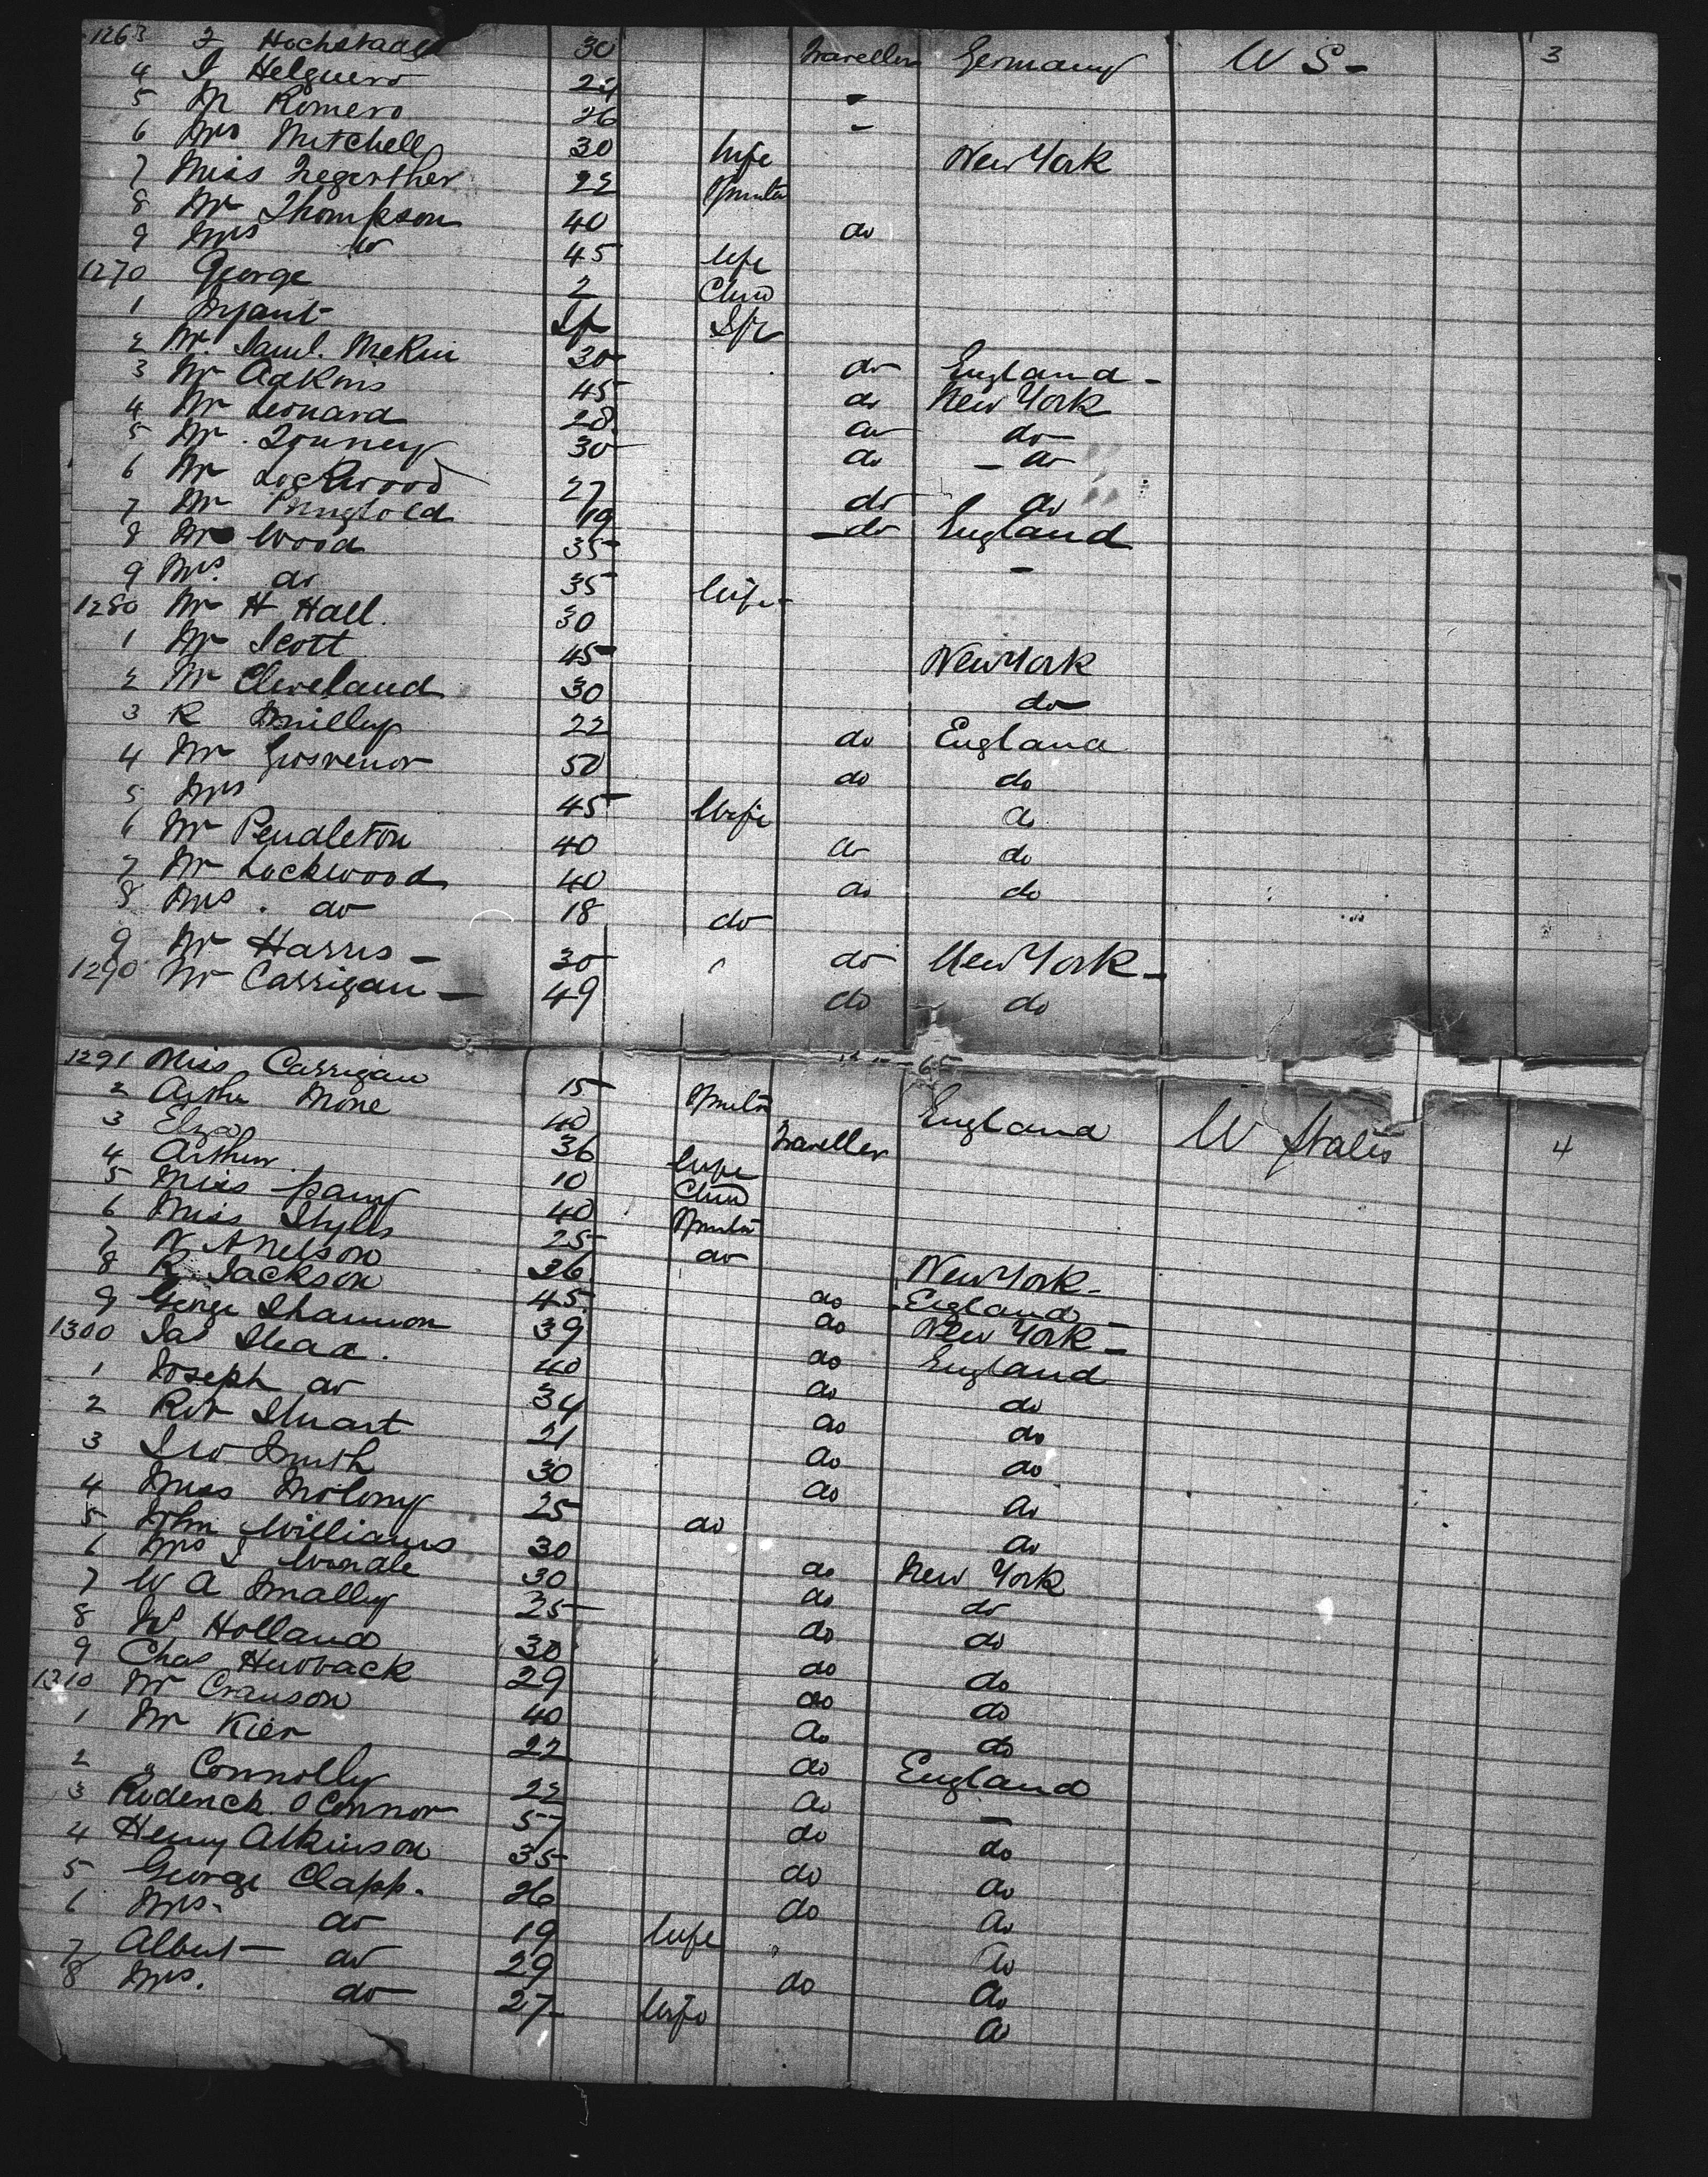 1263 Hochstader 30 Traveller Germany U S - 3
4 Helguero 24 -
5 M Romero 26 -
6 Mrs Mitchell 30 Wife New York
7 Miss 22 Spinster
8 Mr Thompson 40 do
9 Mrs do 45 Wife
1270 George 2 Child
1 Infant Inf Inf
2 Mr. Saml. 30 do England -
3 Mr Adkins 45 do New York
4 Mr Leonard 28 do do
5 Mr. 30 do - do
6 Mr Lockwood 27 do do
7 Mr 19 do England
8 Mr Wood 35 -
9 Mrs. do 35 Wife
1280 Mr H Hall. 30
1 Mr Scott 45 New York
2 Mr Cleveland 30 do
3 R 22 do England
4 Mr Grosvenor 50 do do
5 Mrs 45 Wife do
6 Mr Pendleton 40 do do
7 Mr Lockwood 40 do do
8 Mrs. do 18 do
9 Mr Harris - 30 do New York -
1290 Mr Carrigan - 49 do do
65
1291 Miss Carrigan 15 Spinster
2 Arthur 40 Traveller England U States 4
3 Eliza 36 Wife
4 Arthur 10 Child
5 Miss 40 Spinster
6 Miss Styles 25 do
7 Nelson 26 New York -
8 R. Jackson 45 do England
9 George Shannon 39 do New York -
1300 Jas 40 do England
1 Joseph do 34 do do
2 Stuart 21 do do
3 Smith 30 do do
4 Miss Molony 25 do do
5 John Williams 30 do
6 Mrs 30 do New York
7 W A Smalley 25 do do
8 Holland 30 do do
9 Chas 29 do do
1310 Mr Cranson 40 do do
1 Mr Kier 22 do do
2 " Connolly 22 do England
3 Roderick O Connor 57 do -
4 Henry Atkinson 35 do do
5 George Clapp. 26 do do
6 Mrs. do 19 Wife do
7 Albert - do 29 do do
8 Mrs. do 27 Wife do